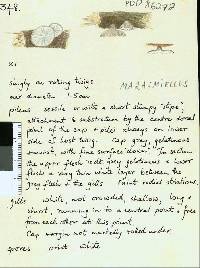 348
PDD 86072
x1
MARASMIELLUS
singly on rotting twigs
cap diameter 1.5cm
pileus sessile or with a short stumpy 'stipe'
attachment to substratum by the centre dorsal
point of the cap & pilei always on inner
side of host twig. Cap grey, gelatinous
with fine surface 'down'. In section
the upper flesh is grey gelatinous & lower
flesh a very thin white layer between the
grey flesh & the gills. Faint radial striations.
gills white, not crowded, shallow, long &
short, running in to a central point, free
from each other at this point.
Cap margin not markedly rolled under
spores print white